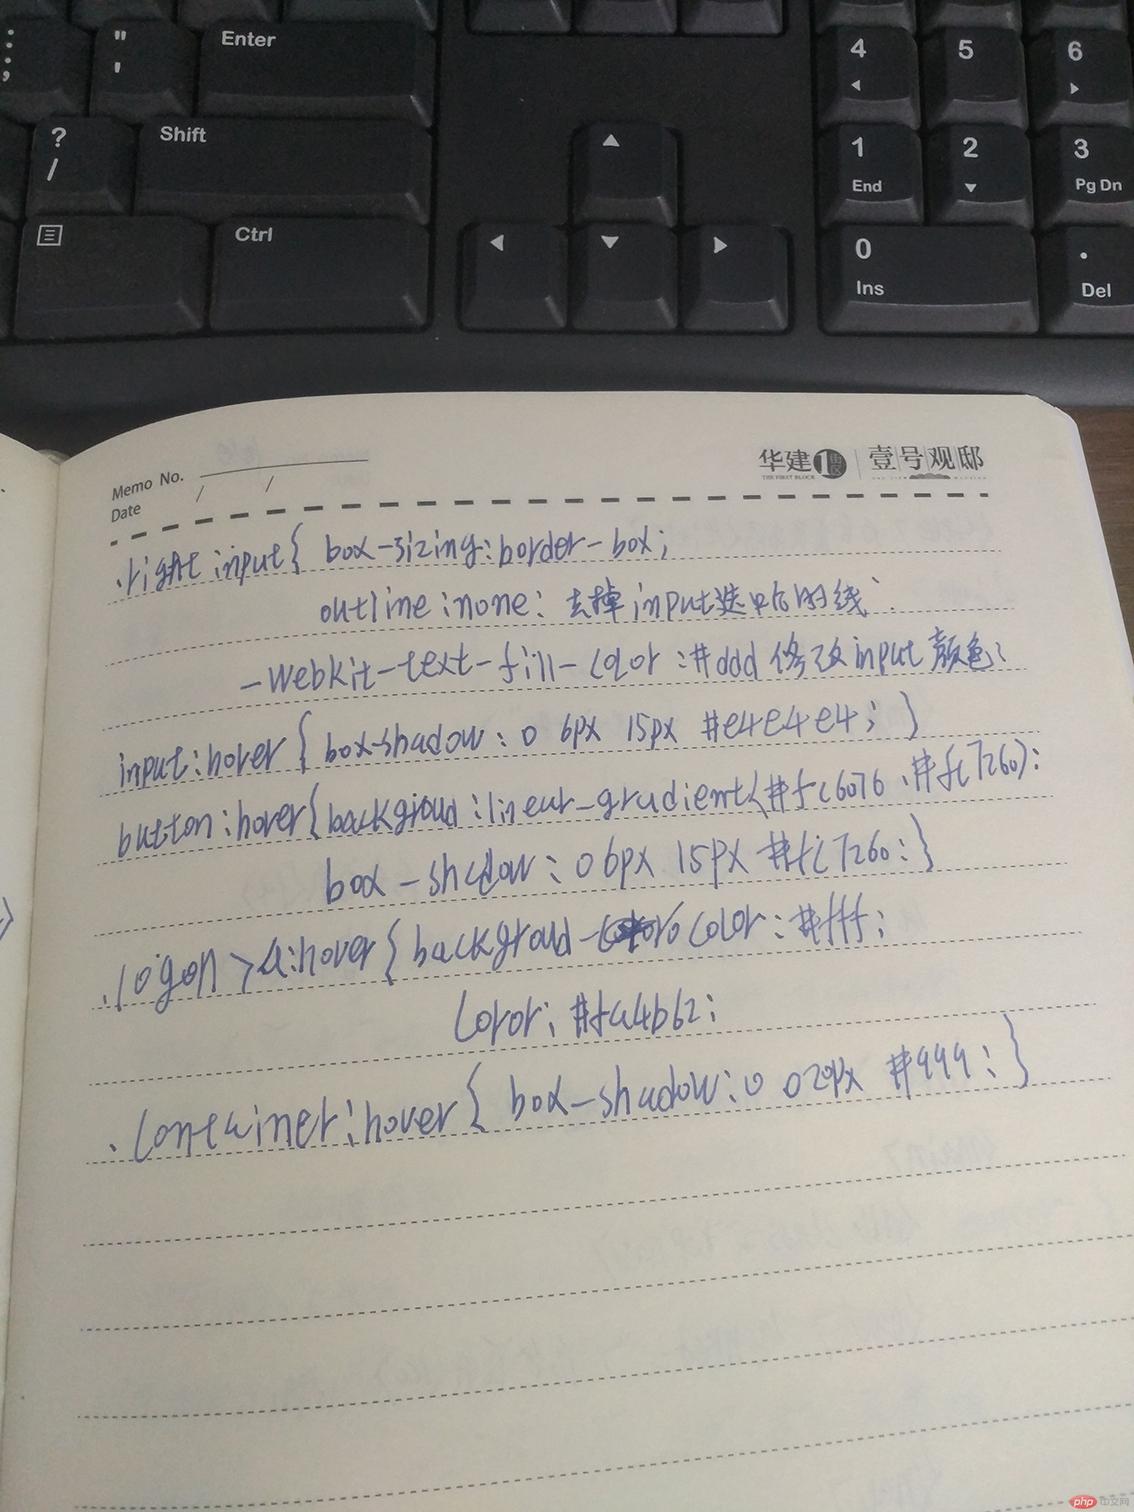 " Enter 4 5 6
; '
? Shift 1 2 3
/ End Pg Dn
Ctrl 0 .
Ins Del
Memo No. 华建1街区 壹号观邸
THE FIRST BLOCK
Date / /
.right input{ box-sizing:border-box;
outline:none; 去掉input选中后的线;
-webkit-text-fill-color:#ddd 修改input颜色;
input:hover{box-shadow:0 6px 15px #e4e4e4; }
button:hover{backgroud:linear-gradient(#fc6076,#fc7260);
box-shadow:0 6px 15px #fc7260;}
.logon>a:hover{backgroud-color:#fff;
color:#fa4b62;
.container:hover{ box-shadow:0 0 20px #999;}
php 中文网